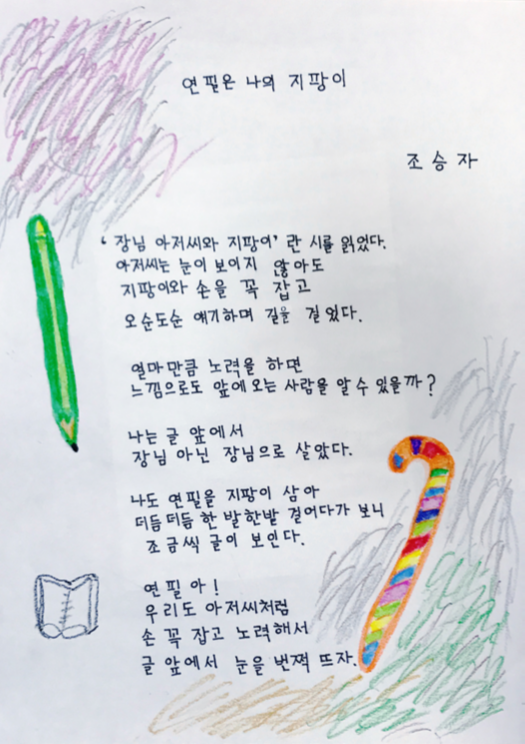 연필은 나의 지팡이
조승자
‘장님 아저씨와 지팡이’란 시를 읽었다.
아저씨는 눈이 보이지 않아도
지팡이와 손을 꼭 잡고
오순도순 얘기하며 길을 걸었다.
얼마만큼 노력을 하면
느낌으로도 앞에 오는 사람을 알 수 있을까?
나는 글 앞에서
장님 아닌 장님으로 살았다.
나도 연필을 지팡이 삼아
더듬더듬 한 발 한발 걸어다가 보니
조금씩 글이 보인다.
연필아!
우리도 아저씨처럼
손 꼭 잡고 노력해서
글 앞에서 눈을 번쩍 뜨자.